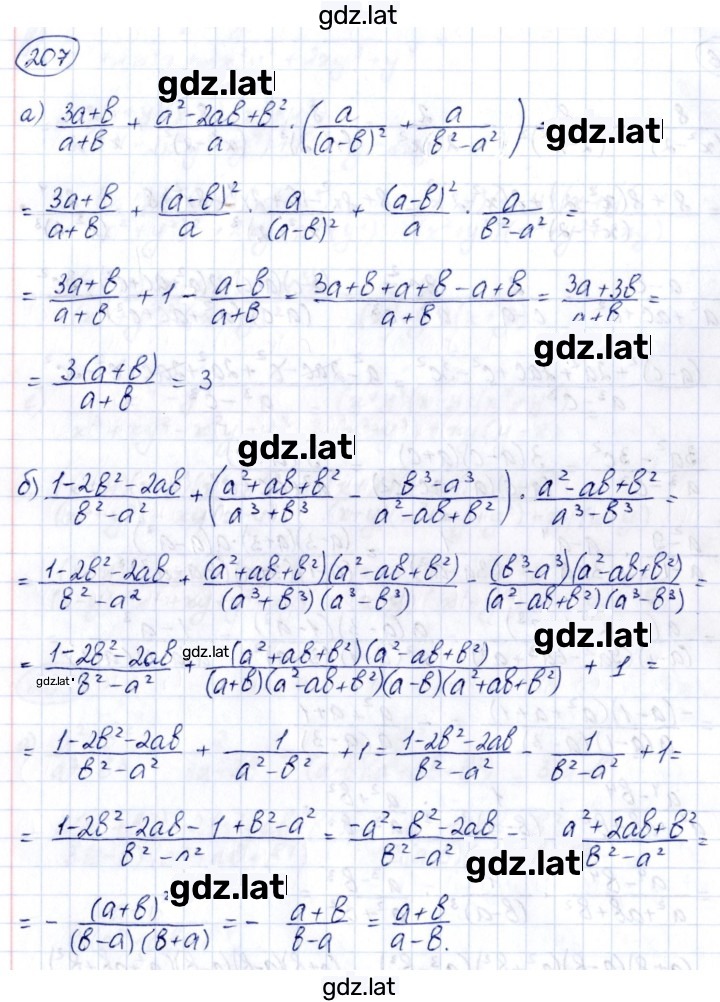 gdz.lat
207
gdz.lat
а) (3a+b)/(a+b) + (a²-2ab+b²)/a · (a/(a-b)² + a/(b²-a²)) =
gdz.lat
= (3a+b)/(a+b) + (a-b)²/a · a/(a-b)² + (a-b)²/a · a/(b²-a²) =
= (3a+b)/(a+b) + 1 - (a-b)/(a+b) = (3a+b+a+b-a+b)/(a+b) = (3a+3b)/(a+b) =
gdz.lat
= 3(a+b)/(a+b) = 3
gdz.lat
б) (1-2b²-2ab)/(b²-a²) + ((a²+ab+b²)/(a³+b³) - (b³-a³)/(a²-ab+b²)) · (a²-ab+b²)/(a³-b³) =
= (1-2b²-2ab)/(b²-a²) + (a²+ab+b²)(a²-ab+b²)/(a³+b³)(a³-b³) - (b³-a³)(a²-ab+b²)/(a²-ab+b²)(a³-b³) =
gdz.lat
gdz.lat
gdz.lat
= (1-2b²-2ab)/(b²-a²) + (a²+ab+b²)(a²-ab+b²)/(a+b)(a²-ab+b²)(a-b)(a²+ab+b²) + 1 =
= (1-2b²-2ab)/(b²-a²) + 1/(a²-b²) + 1 = (1-2b²-2ab)/(b²-a²) - 1/(b²-a²) + 1 =
= (1-2b²-2ab-1+b²-a²)/(b²-a²) = (-a²-b²-2ab)/(b²-a²) - (a²+2ab+b²)/(b²-a²) =
gdz.lat
gdz.lat
= - (a+b)²/(b-a)(b+a) = - (a+b)/(b-a) = (a+b)/(a-b).
gdz.lat